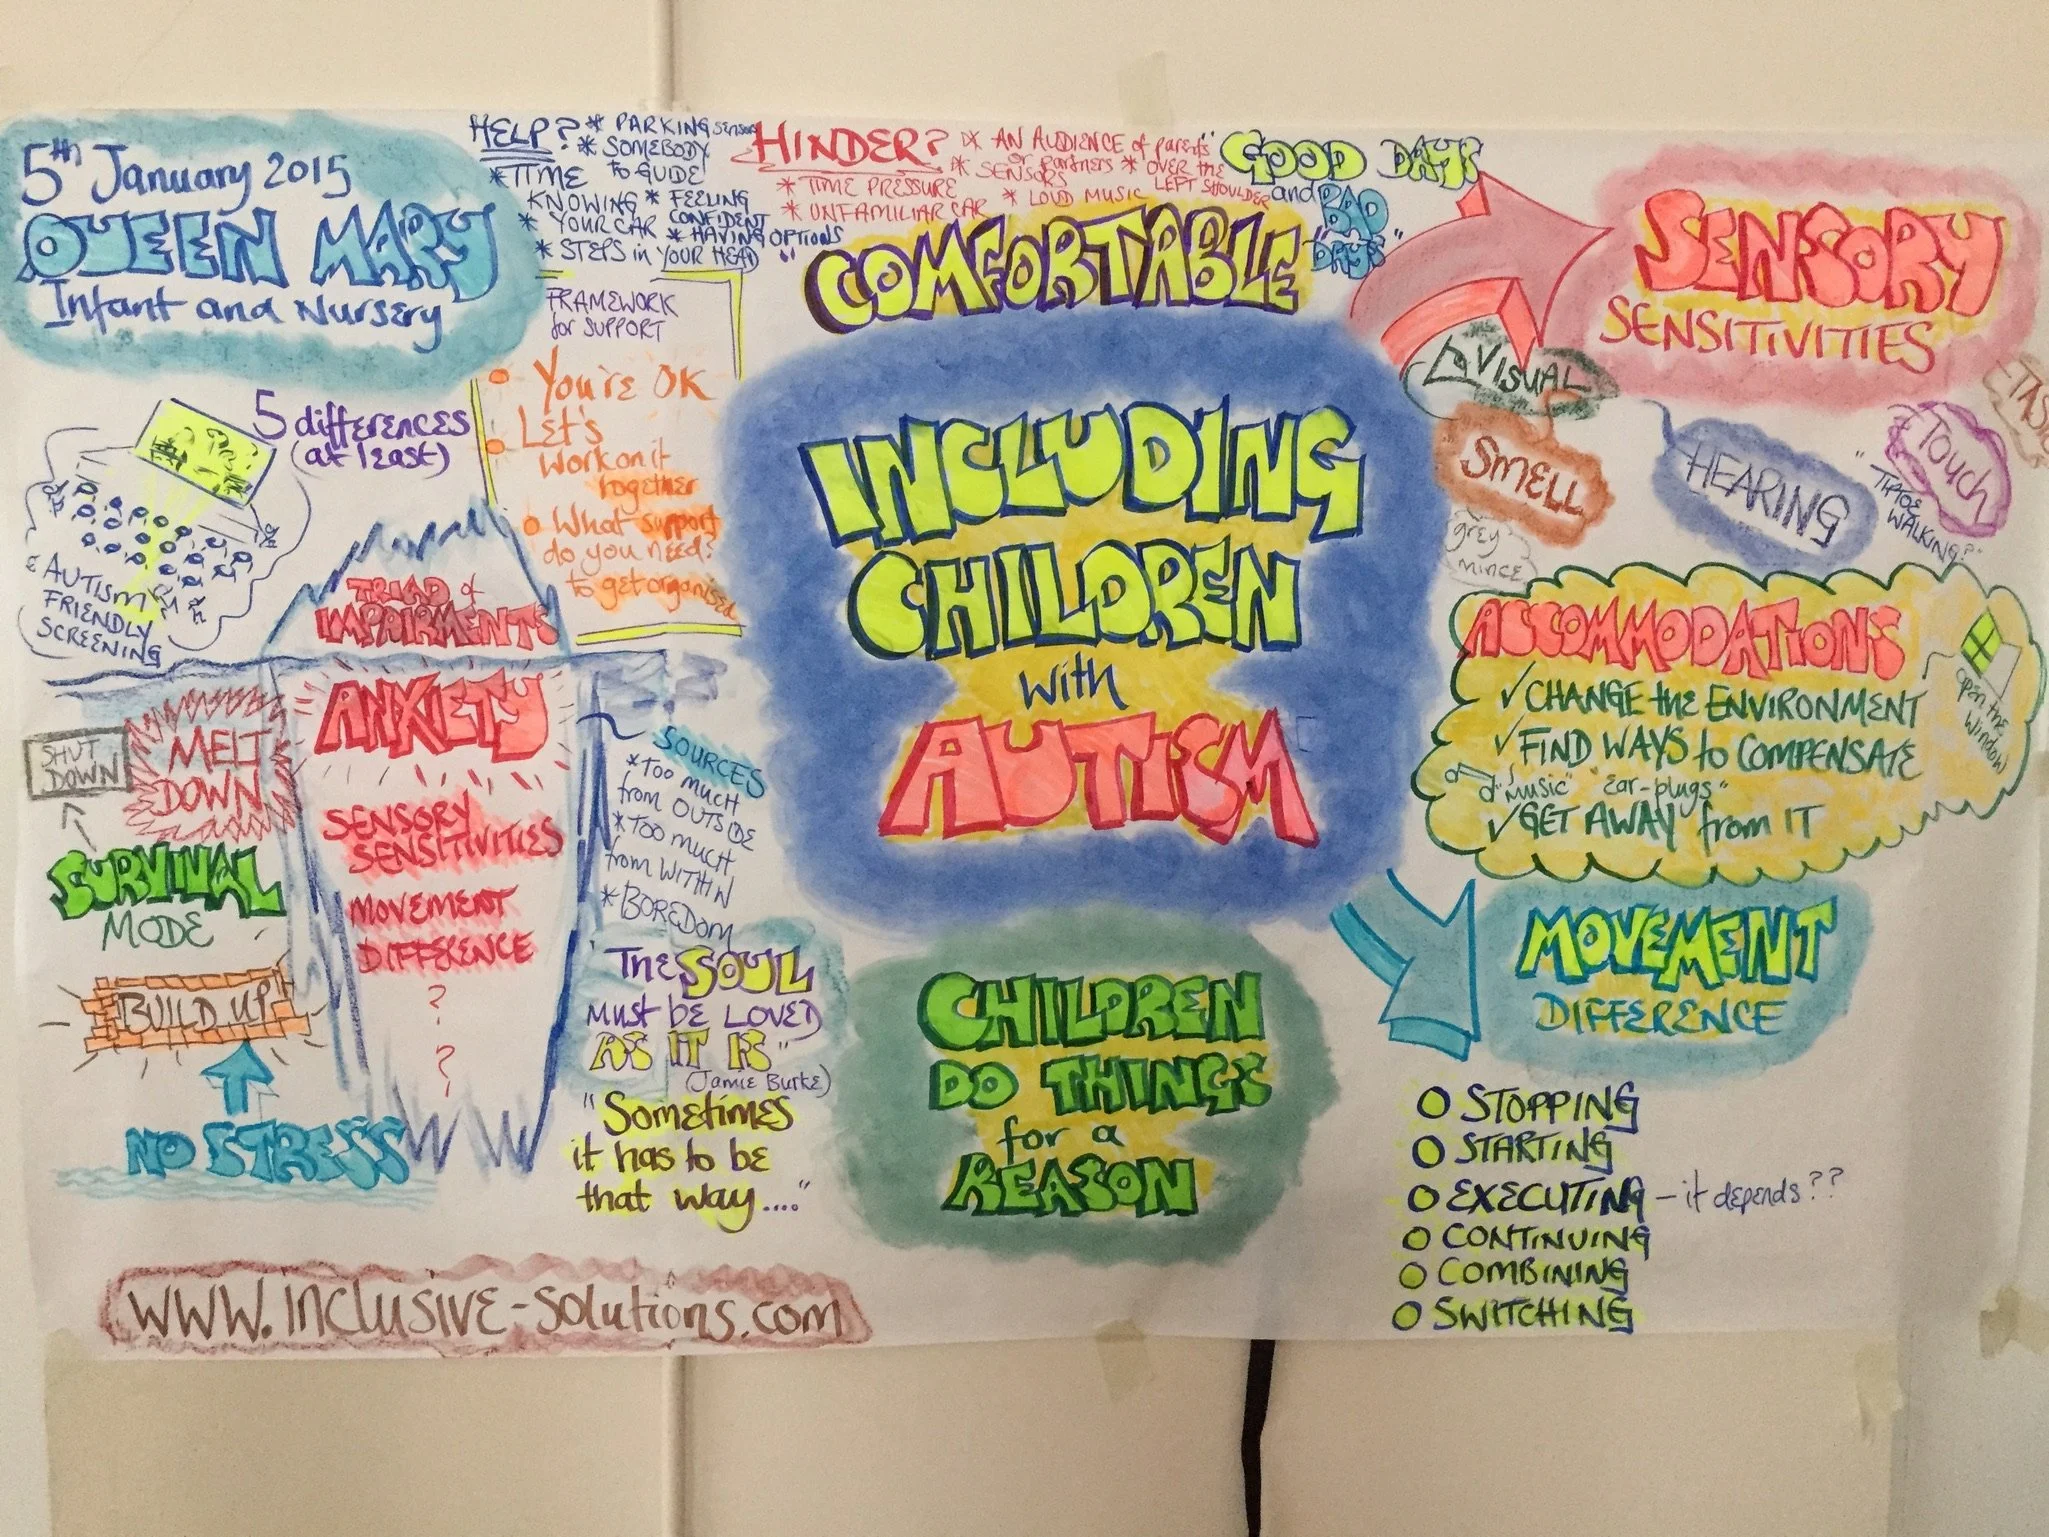 5th January 2015
QUEEN MARY
Infant and Nursery
HELP? * PARKING sensors
* SOMEBODY
to GUIDE
* TIME
KNOWING * FEELING
CONFIDENT
* YOUR CAR * HAVING OPTIONS
* STEPS in YOUR HEAD
HINDER? * AN AUDIENCE of parents
or partners * OVER the
LEFT SHOULDER
* SENSORS
* TIME PRESSURE
* LOUD MUSIC
* UNFAMILIAR CAR
"GOOD DAYS
and "BAD
DAYS"
"COMFORTABLE"
FRAMEWORK
for SUPPORT
You're OK
Let's
work on it
together
What support
do you need?
to get organised
5 differences
(at least)
AUTISM
FRIENDLY
SCREENING
TRIAD of
IMPAIRMENTS
ANXIETY
SENSORY
SENSITIVITIES
MOVEMENT
DIFFERENCE
?
?
SHUT
DOWN
MELT
DOWN
SURVIVAL
MODE
BUILD UP
NO STRESS
SOURCES
* TOO MUCH
from OUTSIDE
* TOO MUCH
from WITHIN
* BOREDOM
"THE SOUL
MUST BE LOVED
AS IT IS"
(Jamie Burke)
"Sometimes
it has to be
that way...."
www.inclusive-solutions.com
INCLUDING
CHILDREN
with
AUTISM
CHILDREN
DO THINGS
for a
REASON
SENSORY
SENSITIVITIES
VISUAL
SMELL
grey
mince
HEARING
Touch
"TIPTOE
WALKING?"
ACCOMMODATIONS
✓ CHANGE the ENVIRONMENT
open the
window
✓ FIND WAYS to COMPENSATE
"music" "ear-plugs"
✓ GET AWAY from IT
MOVEMENT
DIFFERENCE
STOPPING
STARTING
EXECUTING – it depends??
CONTINUING
COMBINING
SWITCHING